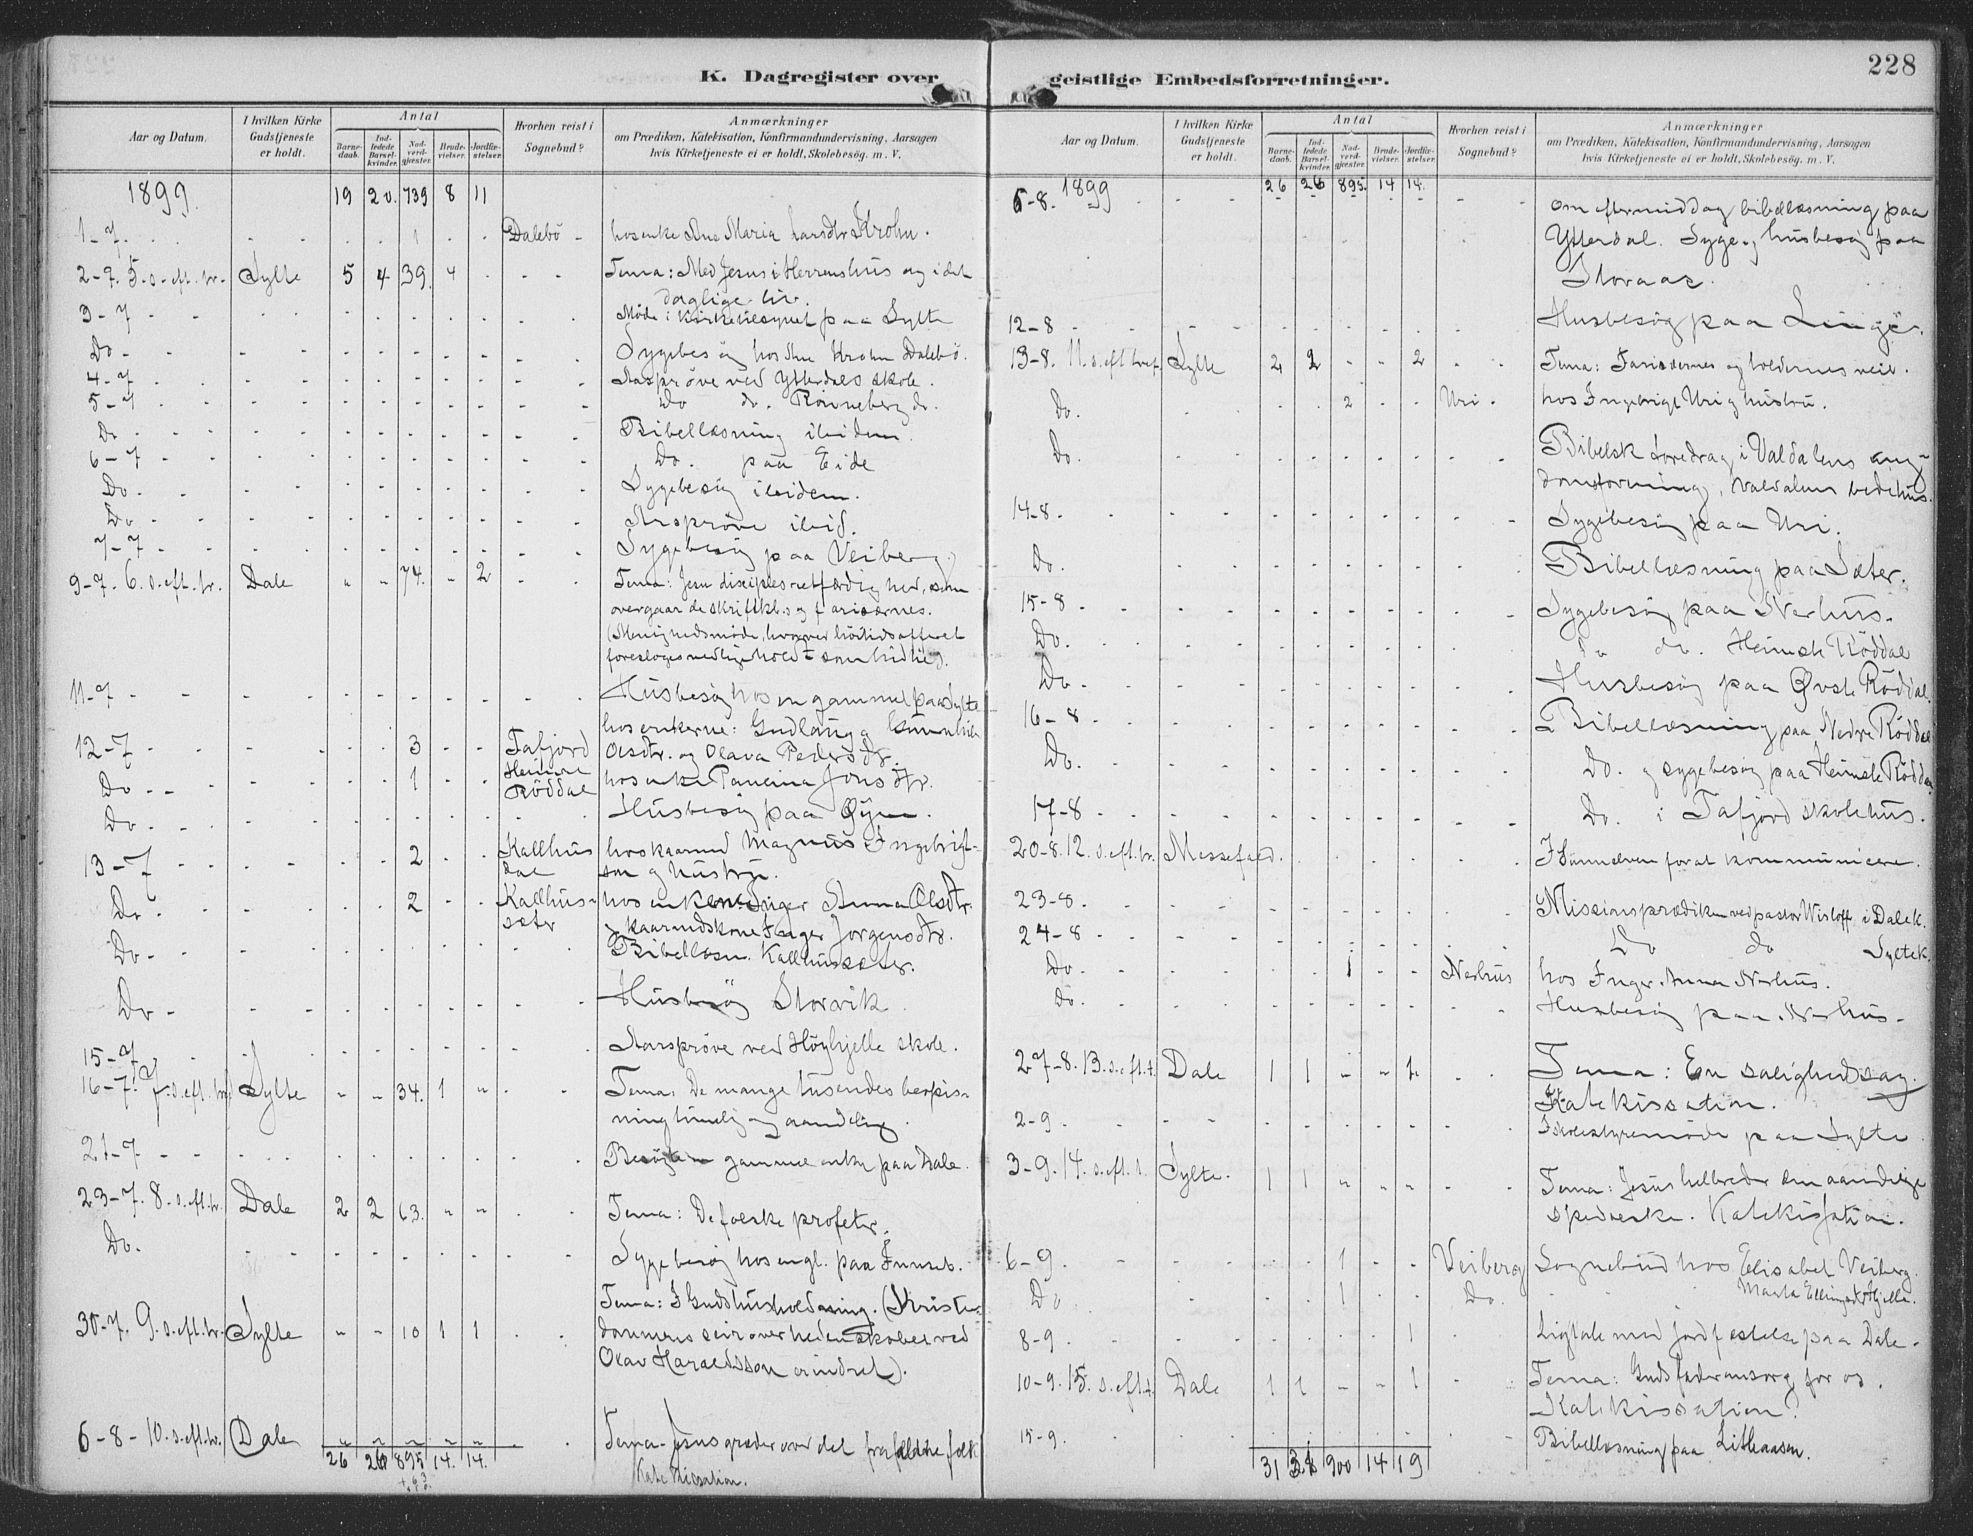 K. Dagregister over
Aar og Datum.
I hvilken Kirke Gudstjeneste er holdt.
Antal
Barnedaab.
Indledede Barselkvinder.
Nadverdgjester.
Brudevielser.
Jordfæstelser.
Hvorhen reist i Sognebud?
Anmærkninger
om Prædiken, Katekisation, Konfirmandundervisning, Aarsagen
hvis Kirketjeneste ei er holdt, Skolebesög. m. V.
1899. 19 20. 739 8 11
1-7. 1 Dalebö hos enke Ane Maria Larsdtr Krohn.
2-7. 5. s. eft. tr. Sylte 5 4 39. 4 Tema: Med Jesus i Herrens hus og i det
daglige liv.
3-7 Möde i kirketilsynet paa Sylte
Do Sygebesög hos Ane Krohn Dalebö.
4-7 Aarspröve ved Ytterdals skole.
5-7 Do do. Rönneberg do.
Do Bibellæsning ibidem.
6-7 Do. paa Eide
Do. Sygebesög ibidem.
Do Aarspröve ibid.
7-7 Sygebesög paa Veiberg.
9-7. 6. s. eft. tr. Dale " " 74. " 2 Tema: Jesu disciples retfærdighed, som
overgaar de skriftkl.s og farisæernes.
(Menighedsmöde, hvorved höitidsofferet
foresloges vedligeholdt som hidtil).
11-7 Husbesög hos en gammel paa Sylte
hos enkerne: Gudlaug
12-7 3 Tafjord Olsdtr. og Olava Pedersdtr.
Do 1 Heimre Röddal hos enke Paulina Jonsdtr.
Do Husbesög paa Öyen.
13-7 2 Kallhusdal hos kaarmd Magnus Ingebrigtson og hustru.
Do. 2 Kallhussæter hos enke Anna Olsdtr.
kaarmdskone Inger Jörgensdtr.
Do Bibellæsn. Kallhussæter.
Do Husbesög Storvik.
15-7 Aarspröve ved Höghjelle skole.
16-7. 7. s. eft. tr. Sylte " " 34. 1 " Tema: De mange tusendes bespisning timelig og aandelig.
21-7 Besögte gammel enke paa Dale.
23-7. 8. s. eft. tr. Dale 2 2 63. " " Tema: De falske profeter.
Do. Sygebesög hos ungk. paa
30-7. 9. s. eft. tr. Sylte " " 10 1 1 Tema: I Guds husholdning. (Kristendommens seir over hedenskabet ved
Olav Haraldsson erindret).
6-8 10. s. eft. tr. Dale " " " " " Tema: Jesus græder over det frafaldne folk
Katekisation.
26 26 895 14. 14.
+ 63

geistlige Embedsforretninger.
228
Aar og Datum.
I hvilken Kirke Gudstjeneste er holdt.
Antal
Barnedaab.
Indledede Barselkvinder.
Nadverdgjester.
Brudevielser.
Jordfæstelser.
Hvorhen reist i Sognebud?
Anmærkninger
om Prædiken, Katekisation, Konfirmandundervisning, Aarsagen
hvis Kirketjeneste ei er holdt, Skolebesög. m. V.
6-8. 1899 26 26 895. 14 14.
om eftermiddag bibellæsning paa
Ytterdal. Syge- og husbesög paa
Storaas.
12-8 Husbesög paa Lingé.
13-8. 11. s. eft. tref. Sylte 2 2 " " 2 Tema: Farisæernes og tolderens vei.
Do. 2 Uri hos Ingebrigt Uri og hustru.
Do. Bibelsk foredrag i Valdalens ungdomsforening, Valdalens bedehus.
14-8 Sygebesög paa Uri.
Do. Bibellæsning paa Sæter.
15-8 Sygebesög paa Nerhus.
Do. do. Heimste Röddal
Do Husbesög paa Øvste Röddal.
16-8 Bibellæsning paa Nedre Röddal
Do. Do. og sygebesög paa Heimste Röddal
17-8 Do. i Tafjord skolehus.
20-8. 12. s. eft. tr. Messefald. I Sunnelven for at kommunicere.
23-8. Missionsprædiken ved pastor Wisloff i Dale k.
24-8 Do do Sylte k.
Do. 1 Nerhus hos Inger Anna Nerhus.
Do. Husbesög paa Nerhus.
27-8. 13. s. eft. t. Dale 1 1 " " 1. Tema: En salighedssag.
Katekisation.
2-9. Skolestyremöde paa Sylte.
3-9. 14. s. eft. t. Sylte. 1 1 " " " Tema: Jesus helbreder den aandelige
spedalske. Katekisation.
6-9. 1 Veiberg Sognebud hos Elisabet Veiberg.
Do 1 Do. Hjelle.
8-9. 1 Ligtale med jordfæstelse paa Dale.
10-9. 15. s. eft. t. Dale 1 1 " " 1 Tema: Guds faderomsorg for os.
Katekisation.
15-9. Bibellæsning paa
31 31 900 14 19